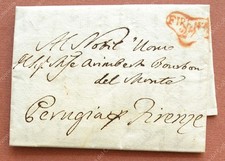 FIRENZE
Al Nobil' Uomo
Il Sig.re Arimbert Bourbon
del Monte
Perugia x Firenze